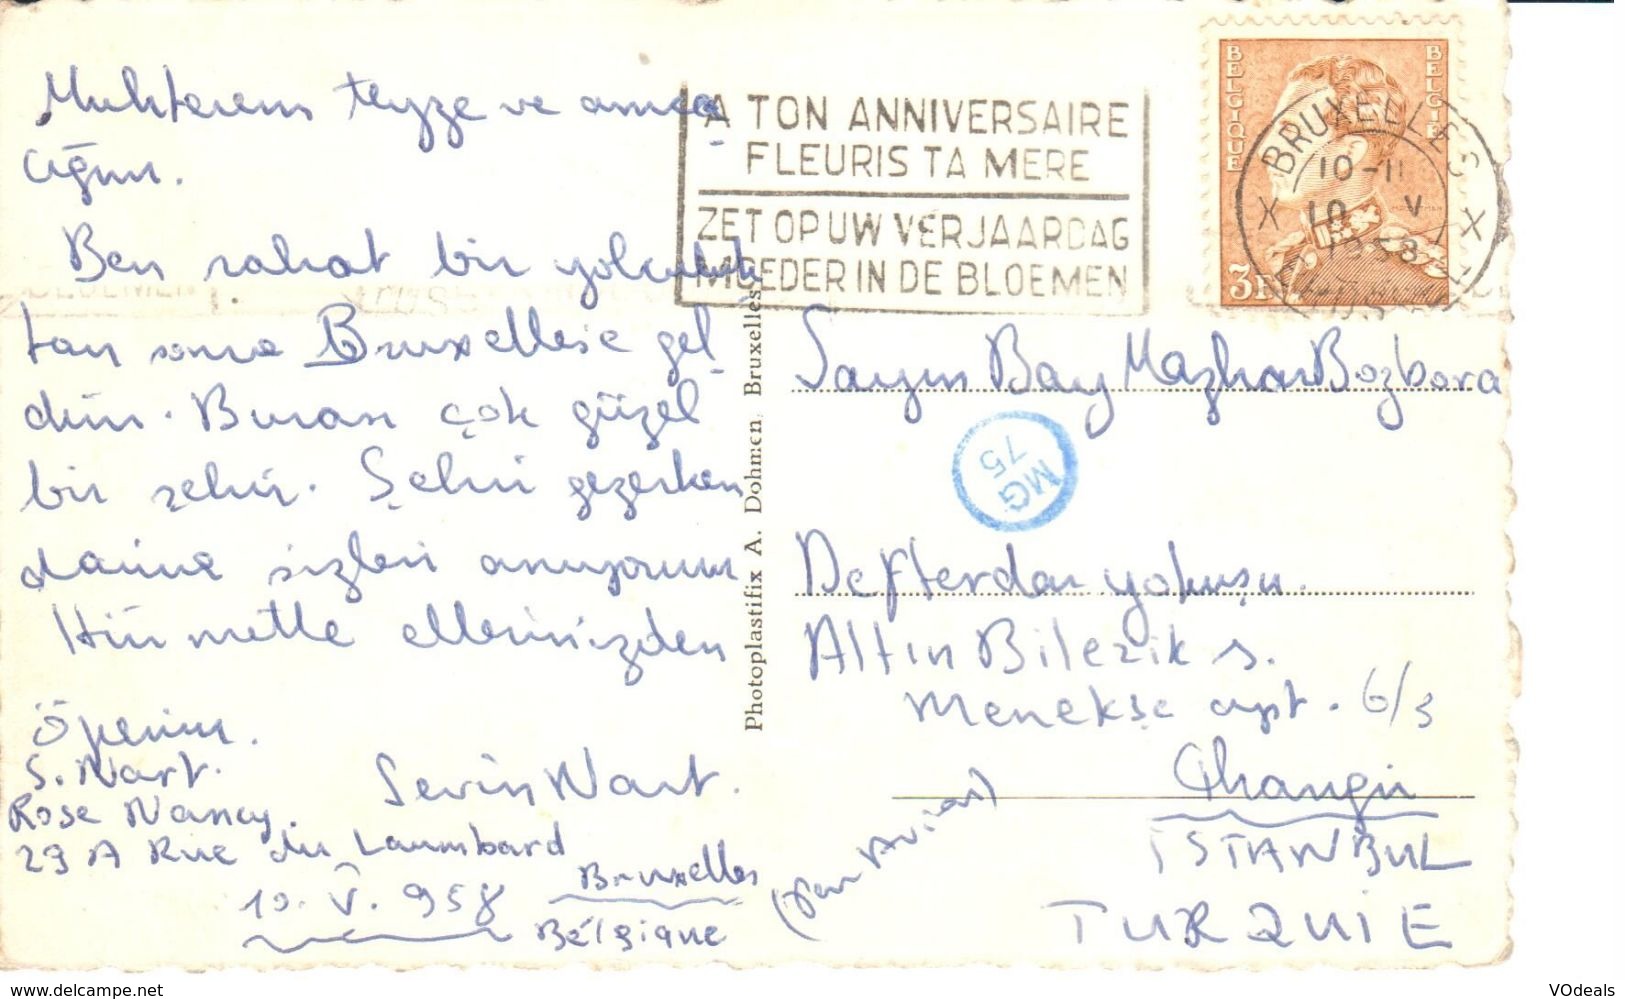 Muhterem teyze ve amca
cığım.
Ben rahat bir yolculuk
tan sonra Bruxellese gel
dim. Burası çok güzel
bir şehir. Şehri gezerken
daima sizleri anıyorum
Hürmetle ellerinizden
öperim.
S. Nart.
Rose Nancy.
29 A Rue du Laumbard
Bruxelles
10. V. 958
Bélgique
Sevin Nart.
A TON ANNIVERSAIRE
FLEURIS TA MERE
ZET OP UW VERJAARDAG
MOEDER IN DE BLOEMEN
BELGIQUE
BELGIE
3F
BRUXELLES
X 10-11 X
10 V
1958
Photoplastifix A. Dohmen, Bruxelles
Sayın Bay Mazhar Bozbora
MG
75
Defterdar yokuşu.
Altın Bilezik s.
Menekşe apt. 6/3
Cihangir
İSTANBUL
TURQUIE
(Par Avion)
www.delcampe.net
VOdeals